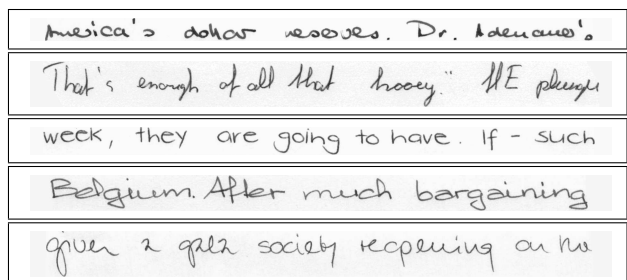 America's dollar reserves. Dr. Adenauer's.
That's enough of all that hooey." HE plunge
week, they are going to have. If - such
Belgium. After much bargaining
given a gala society reopening on the